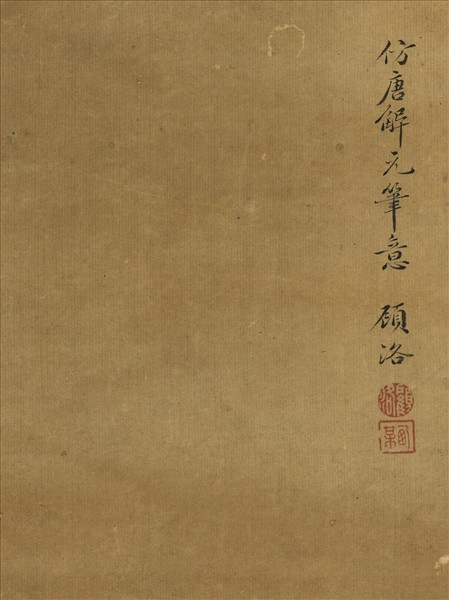 仿唐解元筆意 顾洛